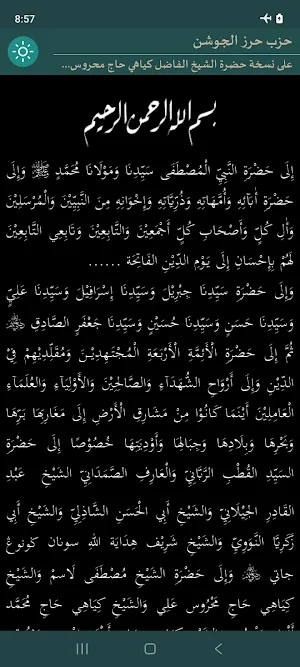 8:57
حزب حرز الجوشن
على نسخة حضرة الشيخ الفاضل كياهي حاج محروس...
بسم الله الرحمن الرحيم
إِلَى حَضْرَةِ النَّبِيِّ الْمُصْطَفَى سَيِّدِنَا وَمَوْلَانَا مُحَمَّدٍ ﷺ وَإِلَى
حَضْرَةِ أٰبَآئِهِ وَأُمَّهَاتِهِ وَذُرِّيَّاتِهِ وَإِخْوَانِهِ مِنَ النَّبِيِّيْنَ وَالْمُرْسَلِيْنَ
وَأٰلِ كُلٍّ وَأَصْحَابِ كُلٍّ أَجْمَعِيْنَ وَالتَّابِعِيْنَ وَتَابِعِي التَّابِعِيْنَ
لَهُمْ بِإِحْسَانٍ إِلَى يَوْمِ الدِّيْنِ الْفَاتِحَة ......
وَإِلَى حَضْرَةِ سَيِّدِنَا جِبْرِيْلَ وَسَيِّدِنَا إِسْرَافِيْلَ وَسَيِّدِنَا عَلِيٍّ
وَسَيِّدِنَا حَسَنٍ وَسَيِّدِنَا حُسَيْنٍ وَسَيِّدِنَا جَعْفَرٍ الصَّادِقِ
ثُمَّ إِلَى حَضْرَةِ الْأَئِمَّةِ الْأَرْبَعَةِ الْمُجْتَهِدِيْنَ وَمُقَلِّدِيْهِمْ فِيْ
الدِّيْنِ وَإِلَى أَرْوَاحِ الشُّهَدَآءِ وَالصَّالِحِيْنَ وَالْأَوْلِيَآءِ وَالْعُلَمَآءِ
الْعَامِلِيْنَ أَيْنَمَا كَانُوْا مِنْ مَشَارِقِ الْأَرْضِ إِلَى مَغَارِبِهَا بَرِّهَا
وَبَحْرِهَا وَبِلَادِهَا وَجِبَالِهَا وَأَوْدِيَتِهَا خُصُوْصًا إِلَى حَضْرَةِ
السَيِّدِ الْقُطْبِ الرَّبَّانِيِّ وَالْعَارِفِ الصَّمَدَانِيِّ الشَّيْخِ عَبْدِ
الْقَادِرِ الْجَيْلَانِيِّ وَالشَّيْخِ أَبِي الْحَسَنِ الشَّاذِلِيِّ وَالشَّيْخِ أَبِي
زَكَرِيَّا النَّوَوِيِّ وَالشَّيْخِ شَرِيْفْ هِدَايَةُ اللهِ سونان كونوڠ
جاتي وَإِلَى حَضْرَةِ الشَّيْخِ مُصْطَفَى لَاسَمْ وَالشَّيْخِ
كِيَاهِي حَاجِ مَحْرُوْسْ عَلِي وَالشَّيْخِ كِيَاهِي حَاجِ مُحَمَّد